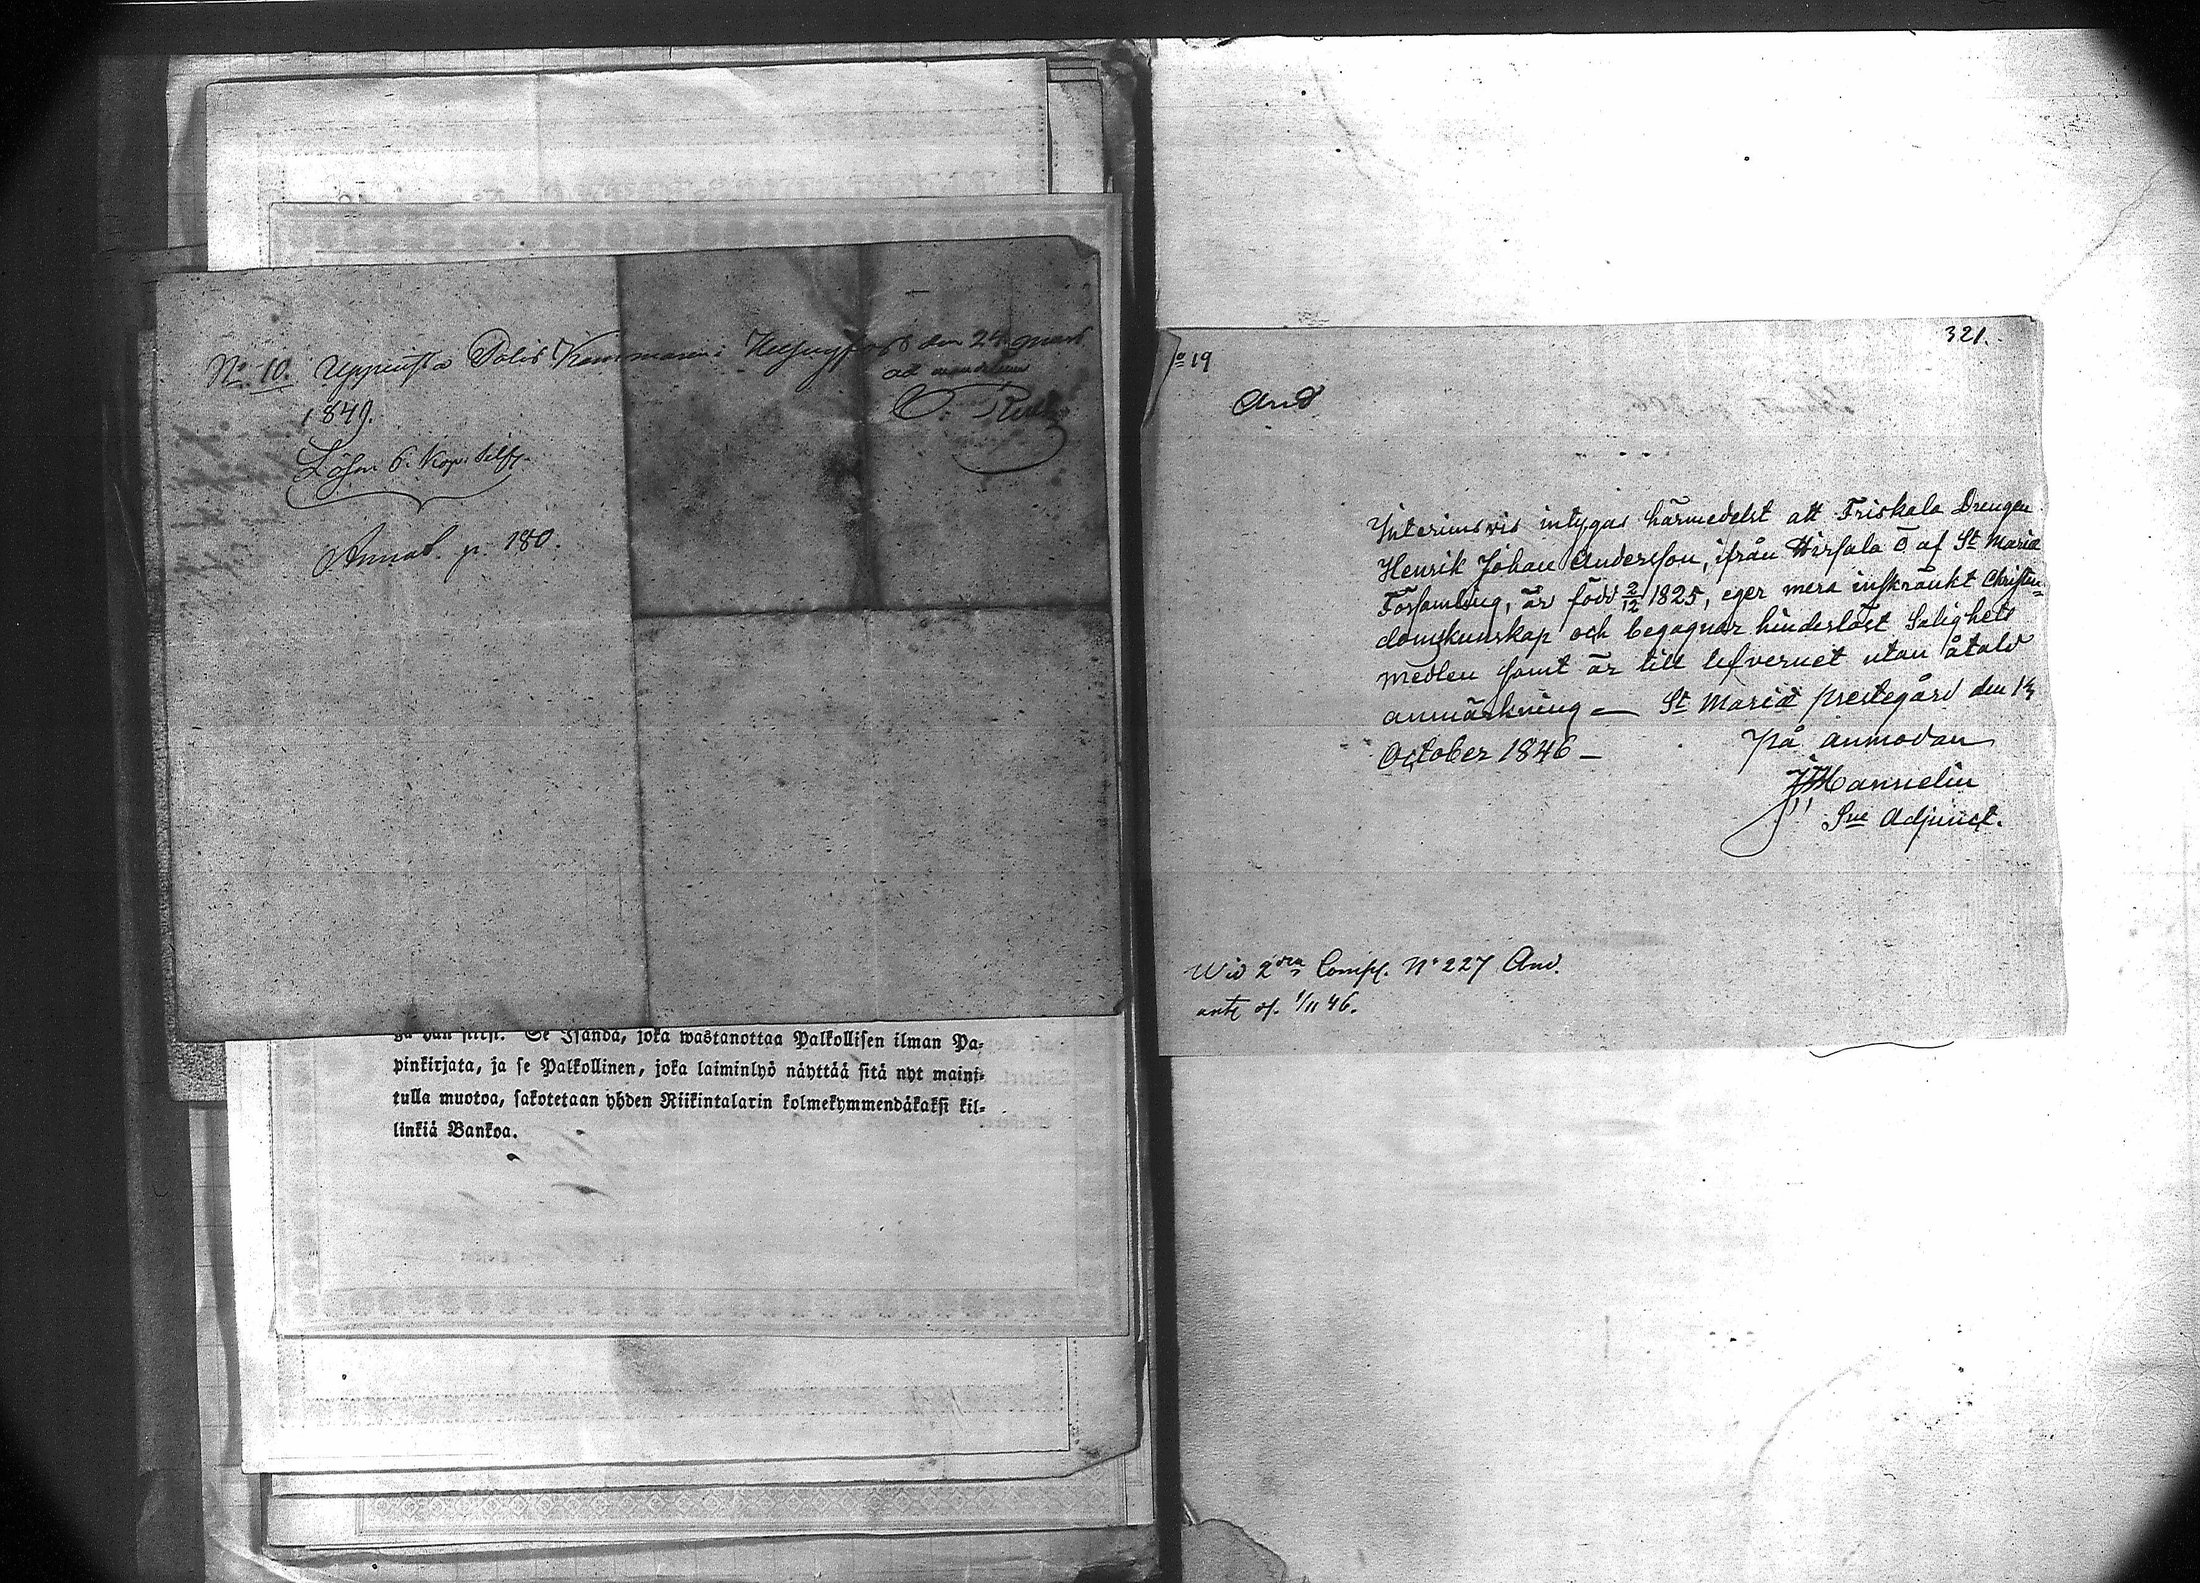 No. 10. Uppvist i Polis Kammaren i Helsingfors den 24 Mars
1849.
ad mandatum
Lösen 6. kop. Silfr.
Annot. p. 180.
ga hän siirsi. Se Isändä, joka wastanottaa Palkollisen ilman Pa-
pinkirjata, ja se Palkollinen, joka laiminlyö näyttää sitä nyt maini-
tulla muotoa, sakotetaan yhden Riikintalarin kolmekymmendäkaksi kil-
linkiä Bankoa.
321.
No 19
And
Interimsvis intygas härmedelst att Friskala Drengen
Henrik Johan Andersson, ifrån Hirsala Ö af St Mariæ
Församling, är född 2/12 1825, eger mera inskränkt Christen=
domskunskap och begagnar hinderslöst Salighets
medlen samt är till lefvernet utan åtald
anmärkning — St Mariæ prestegård den 14
October 1846 —
På anmodan
JJHannelin
Sne Adjunct.
Wid 2dra Compt. No 227 And.
ant. af. 1/11 46.